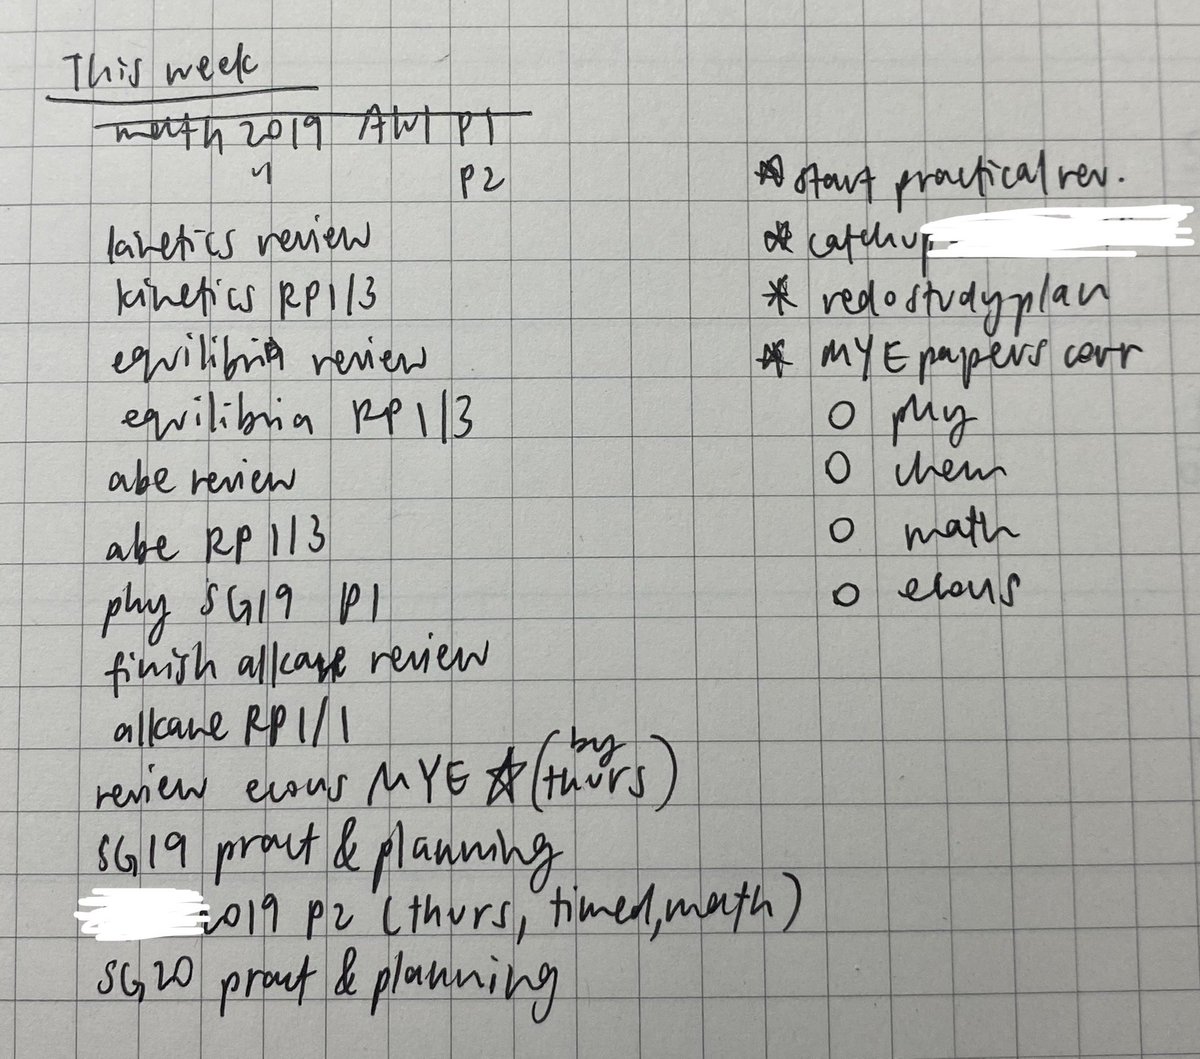 This week
math 2019 AW1 P1
" P2
kinetics review
kinetics RP1/3
equilibria review
equilibria RP1/3
abe review
abe RP1/3
phy SG19 P1
finish alkane review
alkane RP1/1
review econs MYE ☆ (by thurs)
SG19 pract & planning
2019 P2 (thurs, timed, math)
SG20 pract & planning
* start practical rev.
* catchup
* redo study plan
* MYE papers corr
○ phy
○ chem
○ math
○ econs